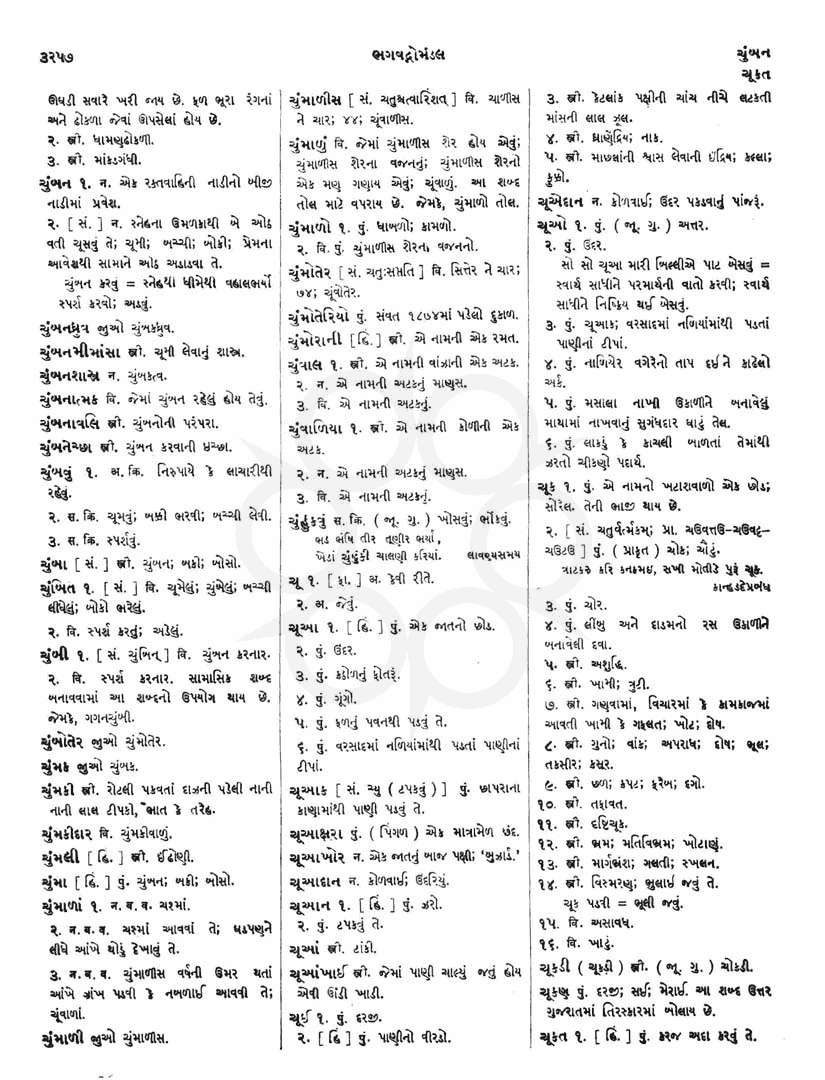 ૩૨૫૭
ભગવદ્ગોમંડલ
ચુંબન
ચૂકત
ઊઘડી સવારે ખરી જાય છે. ફળ ભૂરા રંગનાં
અને ઢોકળા જેવાં ઊપસેલાં હોય છે.
૨. સ્ત્રી. ધામણઢોકળી.
૩. સ્ત્રી. માંકડગંધી.
ચુંબન ૧. ન. એક રક્તવાહિની નાડીનો બીજી
નાડીમાં પ્રવેશ.
૨. [ સં. ] ન. સ્નેહના ઉમળકાથી બે ઓઠ
વતી ચૂસવું તે; ચૂમી; બચ્ચી; બોકી; પ્રેમના
આવેશથી સામાને ઓઠ અડાડવા તે.
ચુંબન કરવું = સ્નેહથી ધીમેથી વહાલભર્યો
સ્પર્શ કરવો; અડવું.
ચુંબનધ્રુવ જુઓ ચુંબકધ્રુવ.
ચુંબનમીમાંસા સ્ત્રી. ચૂમી લેવાનું શાસ્ત્ર.
ચુંબનશાસ્ત્ર ન. ચુંબકત્વ.
ચુંબનાત્મક વિ. જેમાં ચુંબન રહેલું હોય તેવું.
ચુંબનાવલિ સ્ત્રી. ચુંબનોની પરંપરા.
ચુંબનેચ્છા સ્ત્રી. ચુંબન કરવાની ઇચ્છા.
ચુંબવું ૧. અ. ક્રિ. નિરુપાયે કે લાચારીથી
રહેવું.
૨. સ. ક્રિ. ચૂમવું; બકી ભરવી; બચ્ચી લેવી.
૩. સ. ક્રિ. સ્પર્શવું.
ચુંબા [ સં. ] સ્ત્રી. ચુંબન; બકી; બોસો.
ચુંબિત ૧. [ સં. ] વિ. ચૂમેલું; ચુંબેલું; બચ્ચી
લીધેલું; બોકી ભરેલું.
૨. વિ. સ્પર્શ કરતું; અડેલું.
ચુંબી ૧. [ સં. ચુંબિન્ ] વિ. ચુંબન કરનાર.
૨. વિ. સ્પર્શ કરનાર. સામાસિક શબ્દ
બનાવવામાં આ શબ્દનો ઉપયોગ થાય છે.
જેમકે, ગગનચુંબી.
ચુંબોતેર જુઓ ચુંમોતેર.
ચુંમક જુઓ ચુંબક.
ચુંમકી સ્ત્રી. રોટલી પકવતાં દાઝની પડેલી નાની
નાની લાલ ટીપકી, ભાત કે તરેહ.
ચુંમકીદાર વિ. ચુંમકીવાળું.
ચુંમલી [ હિં. ] સ્ત્રી. ઈંઢોણી.
ચુંમા [ હિં. ] પું. ચુંબન; બકી; બોસો.
ચુંમાળાં ૧. ન. બ. વ. ચશ્માં.
૨. ન. બ. વ. ચશ્માં આવવાં તે; ઘડપણને
લીધે આંખે થોડું દેખાવું તે.
૩. ન. બ. વ. ચુંમાળીસ વર્ષની ઉમર થતાં
આંખે ઝાંખ પડવી કે નબળાઈ આવવી તે;
ચૂંવાળાં.
ચુંમાળી જુઓ ચુંમાળીસ.
ચુંમાળીસ [ સં. ચતુશ્ચત્વારિંશત્ ] વિ. ચાળીસ
ને ચાર; ૪૪; ચૂંવાળીસ.
ચુંમાળું વિ. જેમાં ચુંમાળીસ શેર હોય એવું;
ચુંમાળીસ શેરના વજનનું; ચુંમાળીસ શેરનો
એક મણ ગણાય એવું; ચૂંવાળું. આ શબ્દ
તોલ માટે વપરાય છે. જેમકે, ચુંમાળો તોલ.
ચુંમાળો ૧. પું. ધાબળો; કામળો.
૨. વિ. પું. ચુંમાળીસ શેરના વજનનો.
ચુંમોતેર [ સં. ચતુઃસપ્તતિ ] વિ. સિત્તેર ને ચાર;
૭૪; ચૂંવોતેર.
ચુંમોતેરિયો પું. સંવત ૧૮૭૪માં પડેલો દુકાળ.
ચુંમોરાની [ હિં. ] સ્ત્રી. એ નામની એક રમત.
ચુંવાલ ૧. સ્ત્રી. એ નામની વાંઝાની એક અટક.
૨. ન. એ નામની અટકનું માણસ.
૩. વિ. એ નામની અટકનું.
ચુંવાળિયા ૧. સ્ત્રી. એ નામની કોળીની એક
અટક.
૨. ન. એ નામની અટકનું માણસ.
૩. વિ. એ નામની અટકનું.
ચુંહુકવું સ. ક્રિ. ( જૂ. ગુ. ) ખોસવું; ભોંકવું.
ભડ ભંષિ તીર તૂણીર ભર્યાં,
ખેડાં ચુંહુંકી ચાલણી કરિયાં. લાવણ્યસમય
ચૂ ૧. [ ફા. ] અ. કેવી રીતે.
૨. અ. જેવું.
ચૂઆ ૧. [ હિં. ] પું. એક જાતનો છોડ.
૨. પું. ઉંદર.
૩. પું. કઠોળનું ફોતરું.
૪. પું. ગૂંગો.
૫. પું. ફળનું પવનથી પડવું તે.
૬. પું. વરસાદમાં નળિયાંમાંથી પડતાં પાણીનાં
ટીપાં.
ચૂઆક [ સં. ચ્યુ ( ટપકવું ) ] પું. છાપરાના
કાણામાંથી પાણી પડવું તે.
ચૂઆક્ષરા પું. ( પિંગળ ) એક માત્રામેળ છંદ.
ચૂઆખોર ન. એક જાતનું બાજ પક્ષી; ‘બુઝાર્ડ.’
ચૂઆદાન ન. કોળવાઈ; ઉંદરિયું.
ચૂઆન ૧. [ હિં. ] પું. ઝરો.
૨. પું. ટપકવું તે.
ચૂઆં સ્ત્રી. ટાંકી.
ચૂઆંખાઈ સ્ત્રી. જેમાં પાણી ચાલ્યું જતું હોય
એવી ઊંડી ખાડી.
ચૂઈ ૧. પું. દરજી.
૨. [ હિં ] પું. પાણીનો વીરડો.
૩. સ્ત્રી. કેટલાંક પક્ષીની ચાંચ નીચે લટકતી
માંસની લાલ ઝૂલ.
૪. સ્ત્રી. ઘ્રાણેંદ્રિય; નાક.
૫. સ્ત્રી. માછલાંની શ્વાસ લેવાની ઇંદ્રિય; કલ્લા;
ફુક્કો.
ચૂએદાન ન. કોળવાઈ; ઉંદર પકડવાનું પાંજરૂં.
ચૂઓ ૧. પું. ( જૂ. ગુ. ) અત્તર.
૨. પું. ઉંદર.
સો સો ચૂઆ મારી બિલ્લીએ પાટ બેસવું =
સ્વાર્થ સાધીને પરમાર્થની વાતો કરવી; સ્વાર્થ
સાધીને નિષ્ક્રિય થઈ બેસવું.
૩. પું. ચૂઆક; વરસાદમાં નળિયાંમાંથી પડતાં
પાણીનાં ટીપાં.
૪. પું. નાળિયેર વગેરેનો તાપ દઈને કાઢેલો
અર્ક.
૫. પું. મસાલા નાખી ઉકાળીને બનાવેલું
માથામાં નાખવાનું સુગંધદાર ઘાટું તેલ.
૬. પું. લાકડું કે કાચલી બાળતાં તેમાંથી
ઝરતો ચીકણો પદાર્થ.
ચૂક ૧. પું. એ નામનો ખટાશવાળો એક છોડ;
સોરેલ. તેની ભાજી થાય છે.
૨. [ સં. ચતુર્વર્ત્મકમ્; પ્રા. ચઉવત્તઉ-ચઉવટ્ટ-
ચઉટઉ ] પું. ( પ્રાકૃત ) ચોક; ચૌટું.
ત્રાટકરુ કરિ કનકમઇ, સખી મોતીડે પુરૂં ચૂક.
કાન્હડદેપ્રબંધ
૩. પું. ચોર.
૪. પું. લીંબુ અને દાડમનો રસ ઉકાળીને
બનાવેલી દવા.
૫. સ્ત્રી. અશુદ્ધિ.
૬. સ્ત્રી. ખામી; ત્રુટી.
૭. સ્ત્રી. ગણવામાં, વિચારમાં કે કામકાજમાં
આવતી ખામી કે ગફલત; ખોટ; દોષ.
૮. સ્ત્રી. ગુનો; વાંક; અપરાધ; દોષ; ભૂલ;
તકસીર; કસૂર.
૯. સ્ત્રી. છળ; કપટ; ફરેબ; દગો.
૧૦. સ્ત્રી. તફાવત.
૧૧. સ્ત્રી. દૃષ્ટિચૂક.
૧૨. સ્ત્રી. ભ્રમ; મતિવિભ્રમ; ખોટાણું.
૧૩. સ્ત્રી. માર્ગભ્રંશ; ગલતી; સ્ખલન.
૧૪. સ્ત્રી. વિસ્મરણ; ભુલાઈ જવું તે.
ચૂક પડવી = ભૂલી જવું.
૧૫. વિ. અસાવધ.
૧૬. વિ. ખાટું.
ચૂકડી ( ચૂકડી ) સ્ત્રી. ( જૂ. ગુ. ) ચોકડી.
ચૂકણ પું. દરજી; સઈ; મેરાઈ. આ શબ્દ ઉત્તર
ગુજરાતમાં તિરસ્કારમાં બોલાય છે.
ચૂકત ૧. [ હિં. ] પું. કરજ અદા કરવું તે.